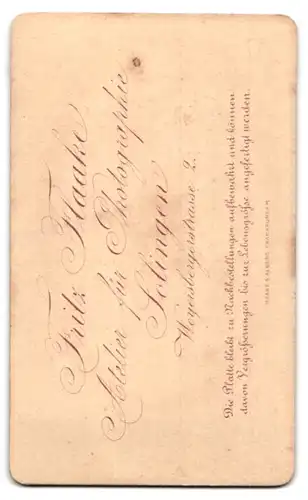 Fritz Haake
Atelier für Photographie
Solingen
Weyersbergerstrasse 2.
Die Platte bleibt zu Nachbestellungen aufbewahrt und können
davon Vergrößerungen bis zur Lebensgröße angefertigt werden.